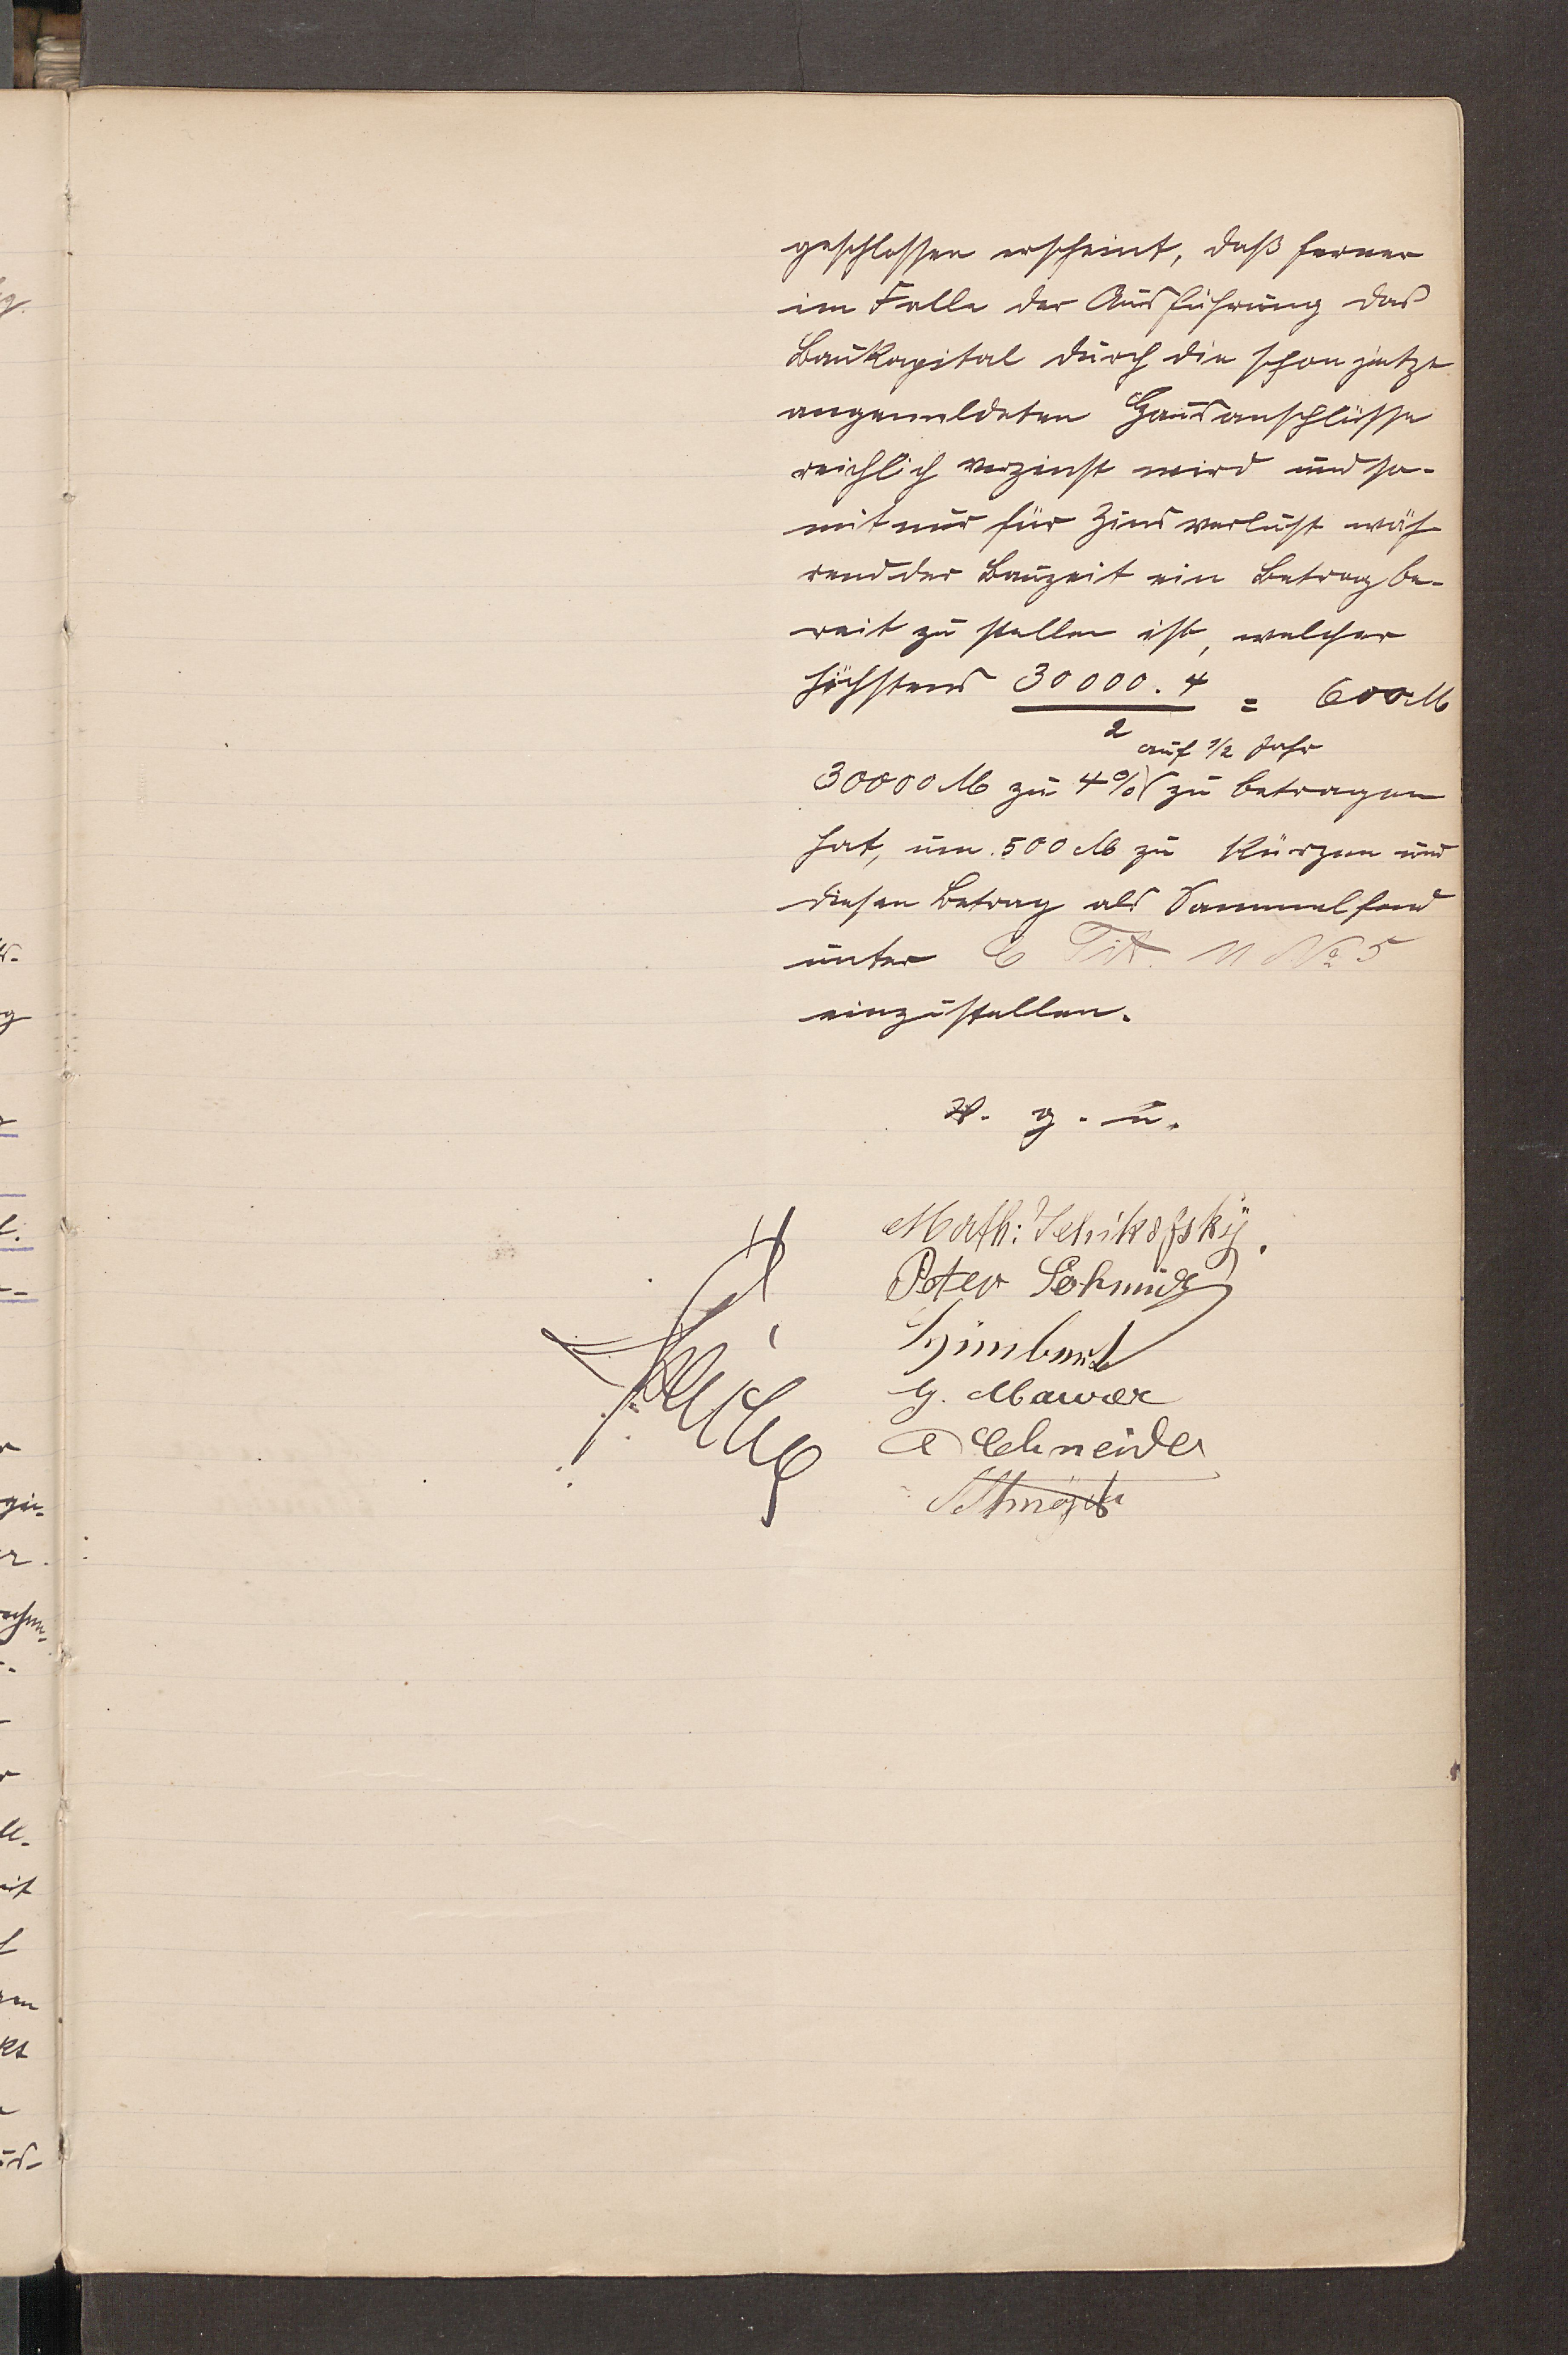 geschlossen erscheint, daß ferner
im Falle der Ausführung das
Baukapital durch die schon jetzt
angemeldeten Hausanschlüsse
reichlich verzinst wird und so-
mit nur für Zinsverlust wäh-
rend der Bauzeit ein Betrag be-
reit zu stellen ist, welcher
höchstens 30000 . 4 = 600 M
2
auf 1/2 Jahr
30000 M zu 4% zu betragen
hat, um 500 M zu kürzen und
diesen Betrag als Sammelfond
unter C Tit. II No 5
einzustellen.
v. g. u.
Math:
Peter Schmidt
Gimbel
G. Maurer
Schneider